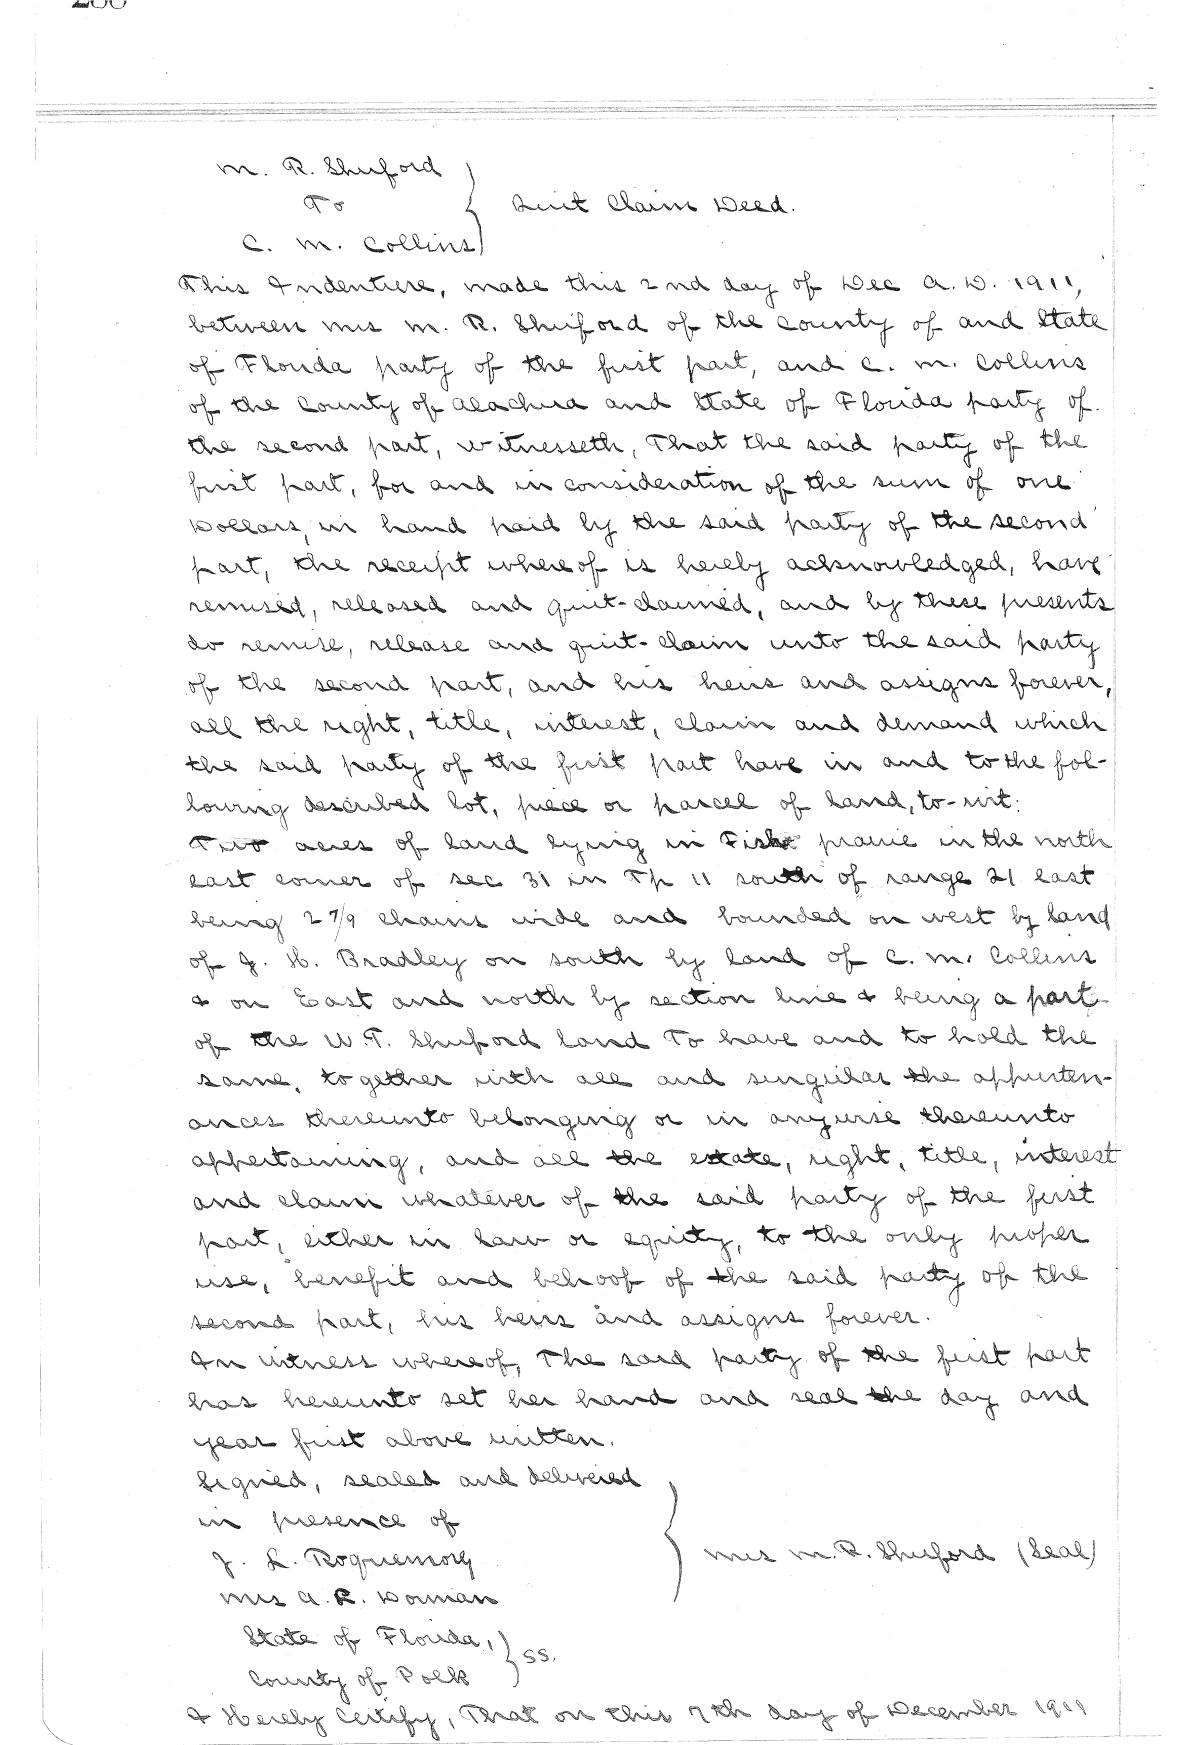 M. R. Shuford
To
Quit Claim Deed.
C. M. Collins
This Indenture, made this 2nd day of Dec A. D. 1911,
between Mrs M. R. Shuford of the County of and State
of Florida party of the first part, and C. M. Collins
of the County of Alachua and State of Florida party of
the second part, witnesseth, That the said party of the
first part, for and in consideration of the sum of one
Dollars, in hand paid by the said party of the second
part, the receipt whereof is hereby acknowledged, have
remised, released and quit-claimed, and by these presents
do remise, release and quit-claim unto the said party
of the second part, and his heirs and assigns forever,
all the right, title, interest, claim and demand which
the said party of the first part have in and to the fol-
lowing described lot, piece or parcel of land, to-wit:
Two acres of land lying in prairie in the north
east corner of sec 31 in Tp 11 south of range 21 east
being 2 7/9 chains wide and bounded on west by land
of J. H. Bradley on south by land of C. M. Collins
& on East and north by section line & being a part
of the W. T. Shuford land To have and to hold the
same, together with all and singular the appurten-
ances thereunto belonging or in anywise thereunto
appertaining, and all the estate, right, title, interest
and claim whatever of the said party of the first
part, either in law or equity, to the only proper
use, benefit and behoof of the said party of the
second part, his heirs and assigns forever.
In witness whereof, The said party of the first part
has hereunto set her hand and seal the day and
year first above written.
Signed, sealed and delivered
in presence of
J. L. Roquemore
Mrs M. R. Shuford (Seal)
Mrs A. R. Dorman
State of Florida,
SS.
County of Polk
I Hereby Certify, That on this 7th day of December 1911